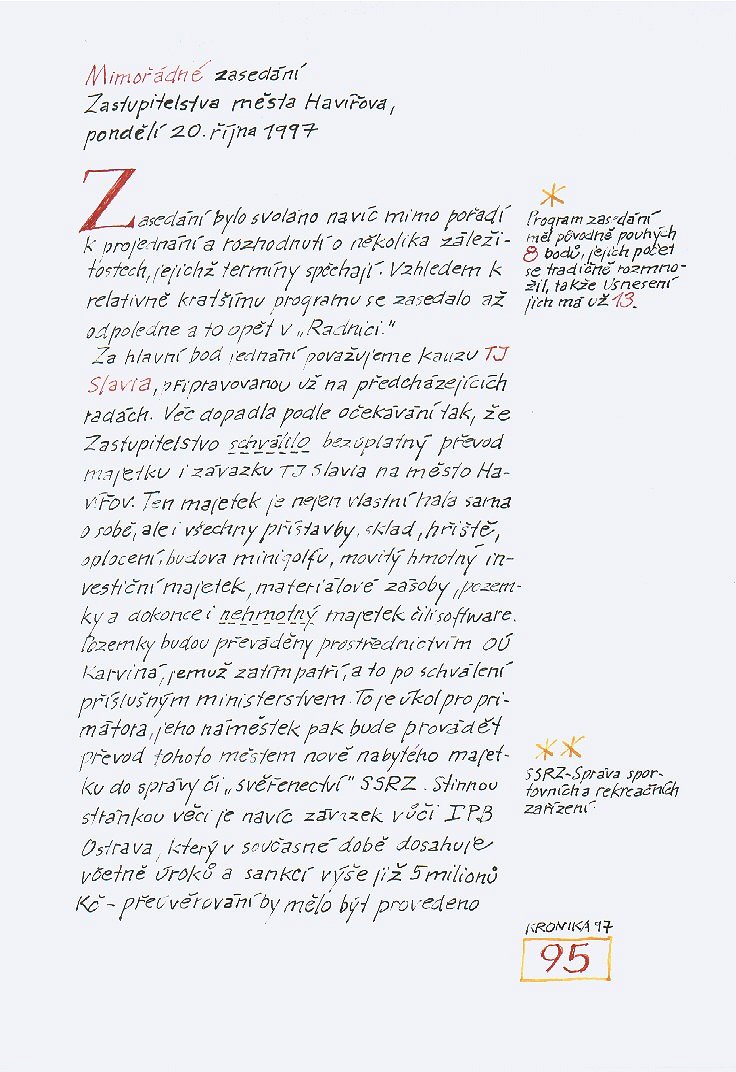 Mimořádné zasedání
Zastupitelstva města Havířova,
pondělí 20. října 1997
Zasedání bylo svoláno navíc mimo pořadí
k projednání a rozhodnutí o několika záleži-
tostech, jejichž termíny spěchají. Vzhledem k
relativně kratšímu programu se zasedalo až
odpoledne a to opět v „Radnici."
Za hlavní bod jednání považujeme kauzu TJ
Slavia, připravovanou už na předcházejících
radách. Věc dopadla podle očekávání tak, že
Zastupitelstvo schválilo bezúplatný převod
majetku i závazku TJ Slavia na město Ha-
vířov. Ten majetek je nejen vlastní hala sama
o sobě, ale i všechny přístavby, sklad, hřiště,
oplocení, budova minigolfu, movitý hmotný in-
vestiční majetek, materiálové zásoby, pozem-
ky a dokonce i nehmotný majetek čili software.
Pozemky budou převáděny prostřednictvím OÚ
Karviná, jemuž zatím patří, a to po schválení
příslušným ministerstvem. To je úkol pro pri-
mátora, jeho náměstek pak bude provádět
převod tohoto městem nově nabytého majet-
ku do správy či „svěřenectví" SSRZ. Stinnou
stránkou věci je navíc závazek vůči IPB
Ostrava, který v současné době dosahuje
včetně úroků a sankcí výše již 5 milionů
Kč - přeúvěrování by mělo být provedeno
*
Program zasedání
měl původně pouhých
8 bodů, jejich počet
se tradičně rozmno-
žil, takže Usnesení
jich má už 13.
**
SSRZ-Správa spor-
tovních a rekreačních
zařízení.
KRONIKA 97
95